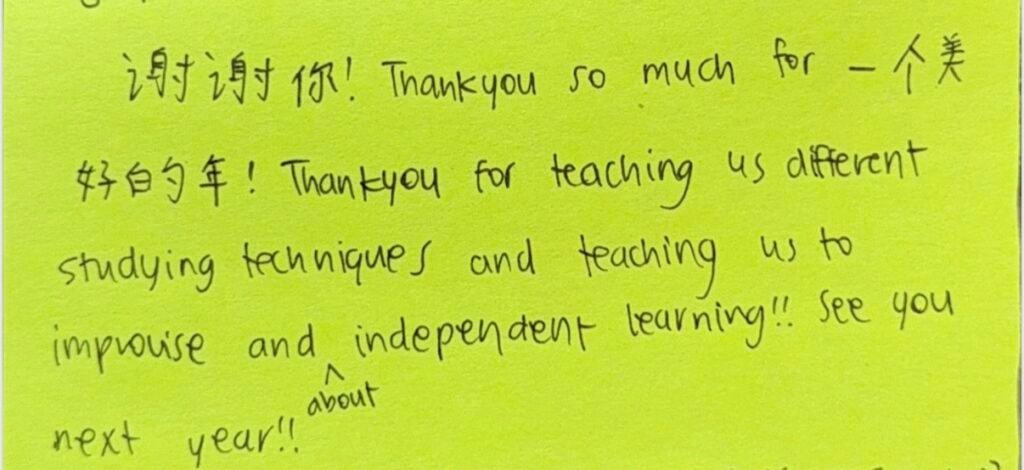 谢谢你! Thankyou so much for 一个美
好的年! Thankyou for teaching us different
studying techniques and teaching us to
improvise and about independent learning!! See you
next year!!